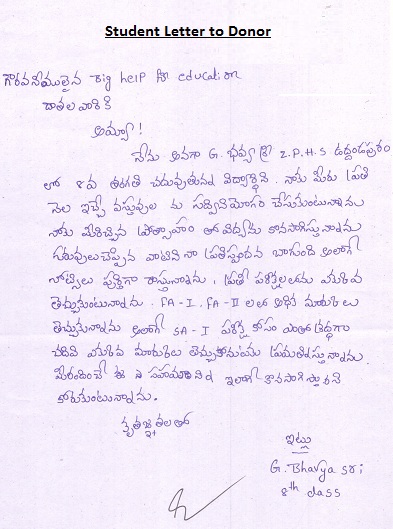 Student Letter to Donor
గౌరవనీయులైన Big help for education
దాతల వారికి
అమ్మా!
నేను అనగా G. భవ్య శ్రీ Z.P.H.S ఉద్దండపురం
లో 8వ తరగతి చదువుతున్న విద్యార్థిని. నాకు మీరు ప్రతి
నెల ఇచ్చే వస్తువుల ను సద్వినియోగం చేసుకుంటున్నాను
నాకు మీరిచ్చిన ప్రోత్సాహం తో విద్యను కొనసాగిస్తున్నాను
గురువులు చెప్పిన వాటిని నా ప్రతిస్పందన బాగుంది అలాగే
నోట్సులు పూర్తిగా రాస్తున్నాను. ప్రతి పరీక్షలలోను
తెచ్చుకుంటున్నాను. FA-I. FA-II లలో అధిక మార్కులు
తెచ్చుకున్నాను అలాగే SA-I పరీక్ష కోసం ఎంతో శ్రద్ధగా
చదివి మార్కులు తెచ్చుకొనుటకు ప్రయత్నిస్తున్నాను.
మీరందించే ఈ సహాయాన్ని ఇలాగే కొనసాగిస్తారని
కోరుకుంటున్నాను.
కృతజ్ఞతలతో
ఇట్లు
G. Bhavya sri
8th class